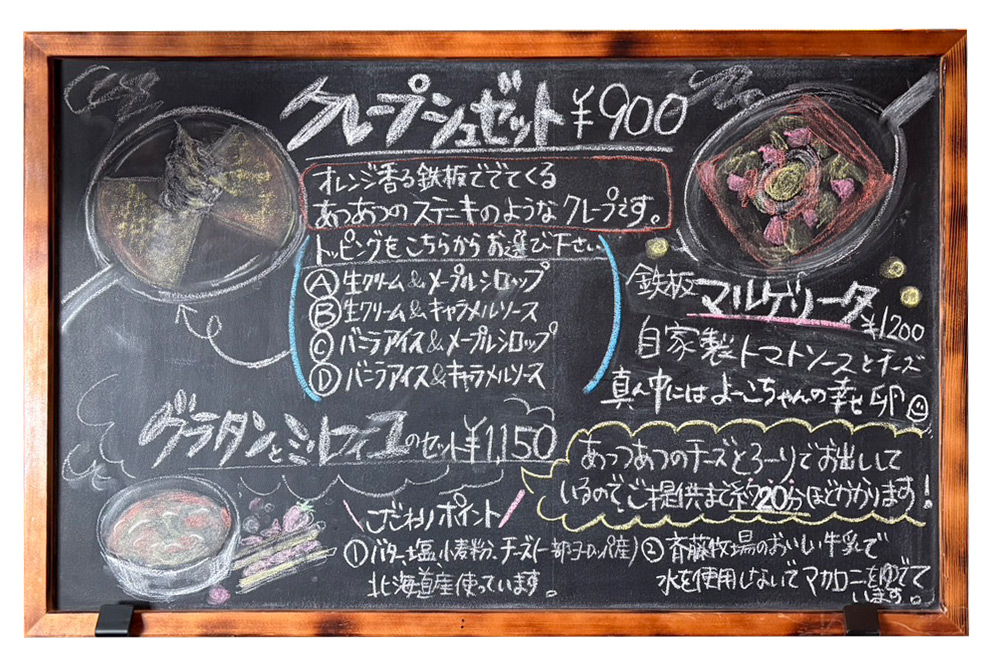 クレープシュゼット ¥900
オレンジ香る鉄板ででてくる
あつあつのステーキのようなクレープです。
トッピングをこちらからお選び下さい
Ⓐ生クリーム&メープルシロップ
Ⓑ生クリーム&キャラメルソース
Ⓒバニラアイス&メープルシロップ
Ⓓバニラアイス&キャラメルソース
鉄板マルゲリータ
¥1200
自家製トマトソースとチーズ
真ん中にはよーこちゃんの幸せ卵
グラタンとミルフィユのセット¥1,150
あっつあつのチーズとろーりでお出しして
いるので、ご提供まで約20分ほどかかります!
こだわりポイント
①バター、塩、小麦粉、チーズ(一部ヨーロッパ産)
北海道産使っています。
②斉藤牧場のおいしい牛乳で
水を使用しないでマカロニをゆでて
います。